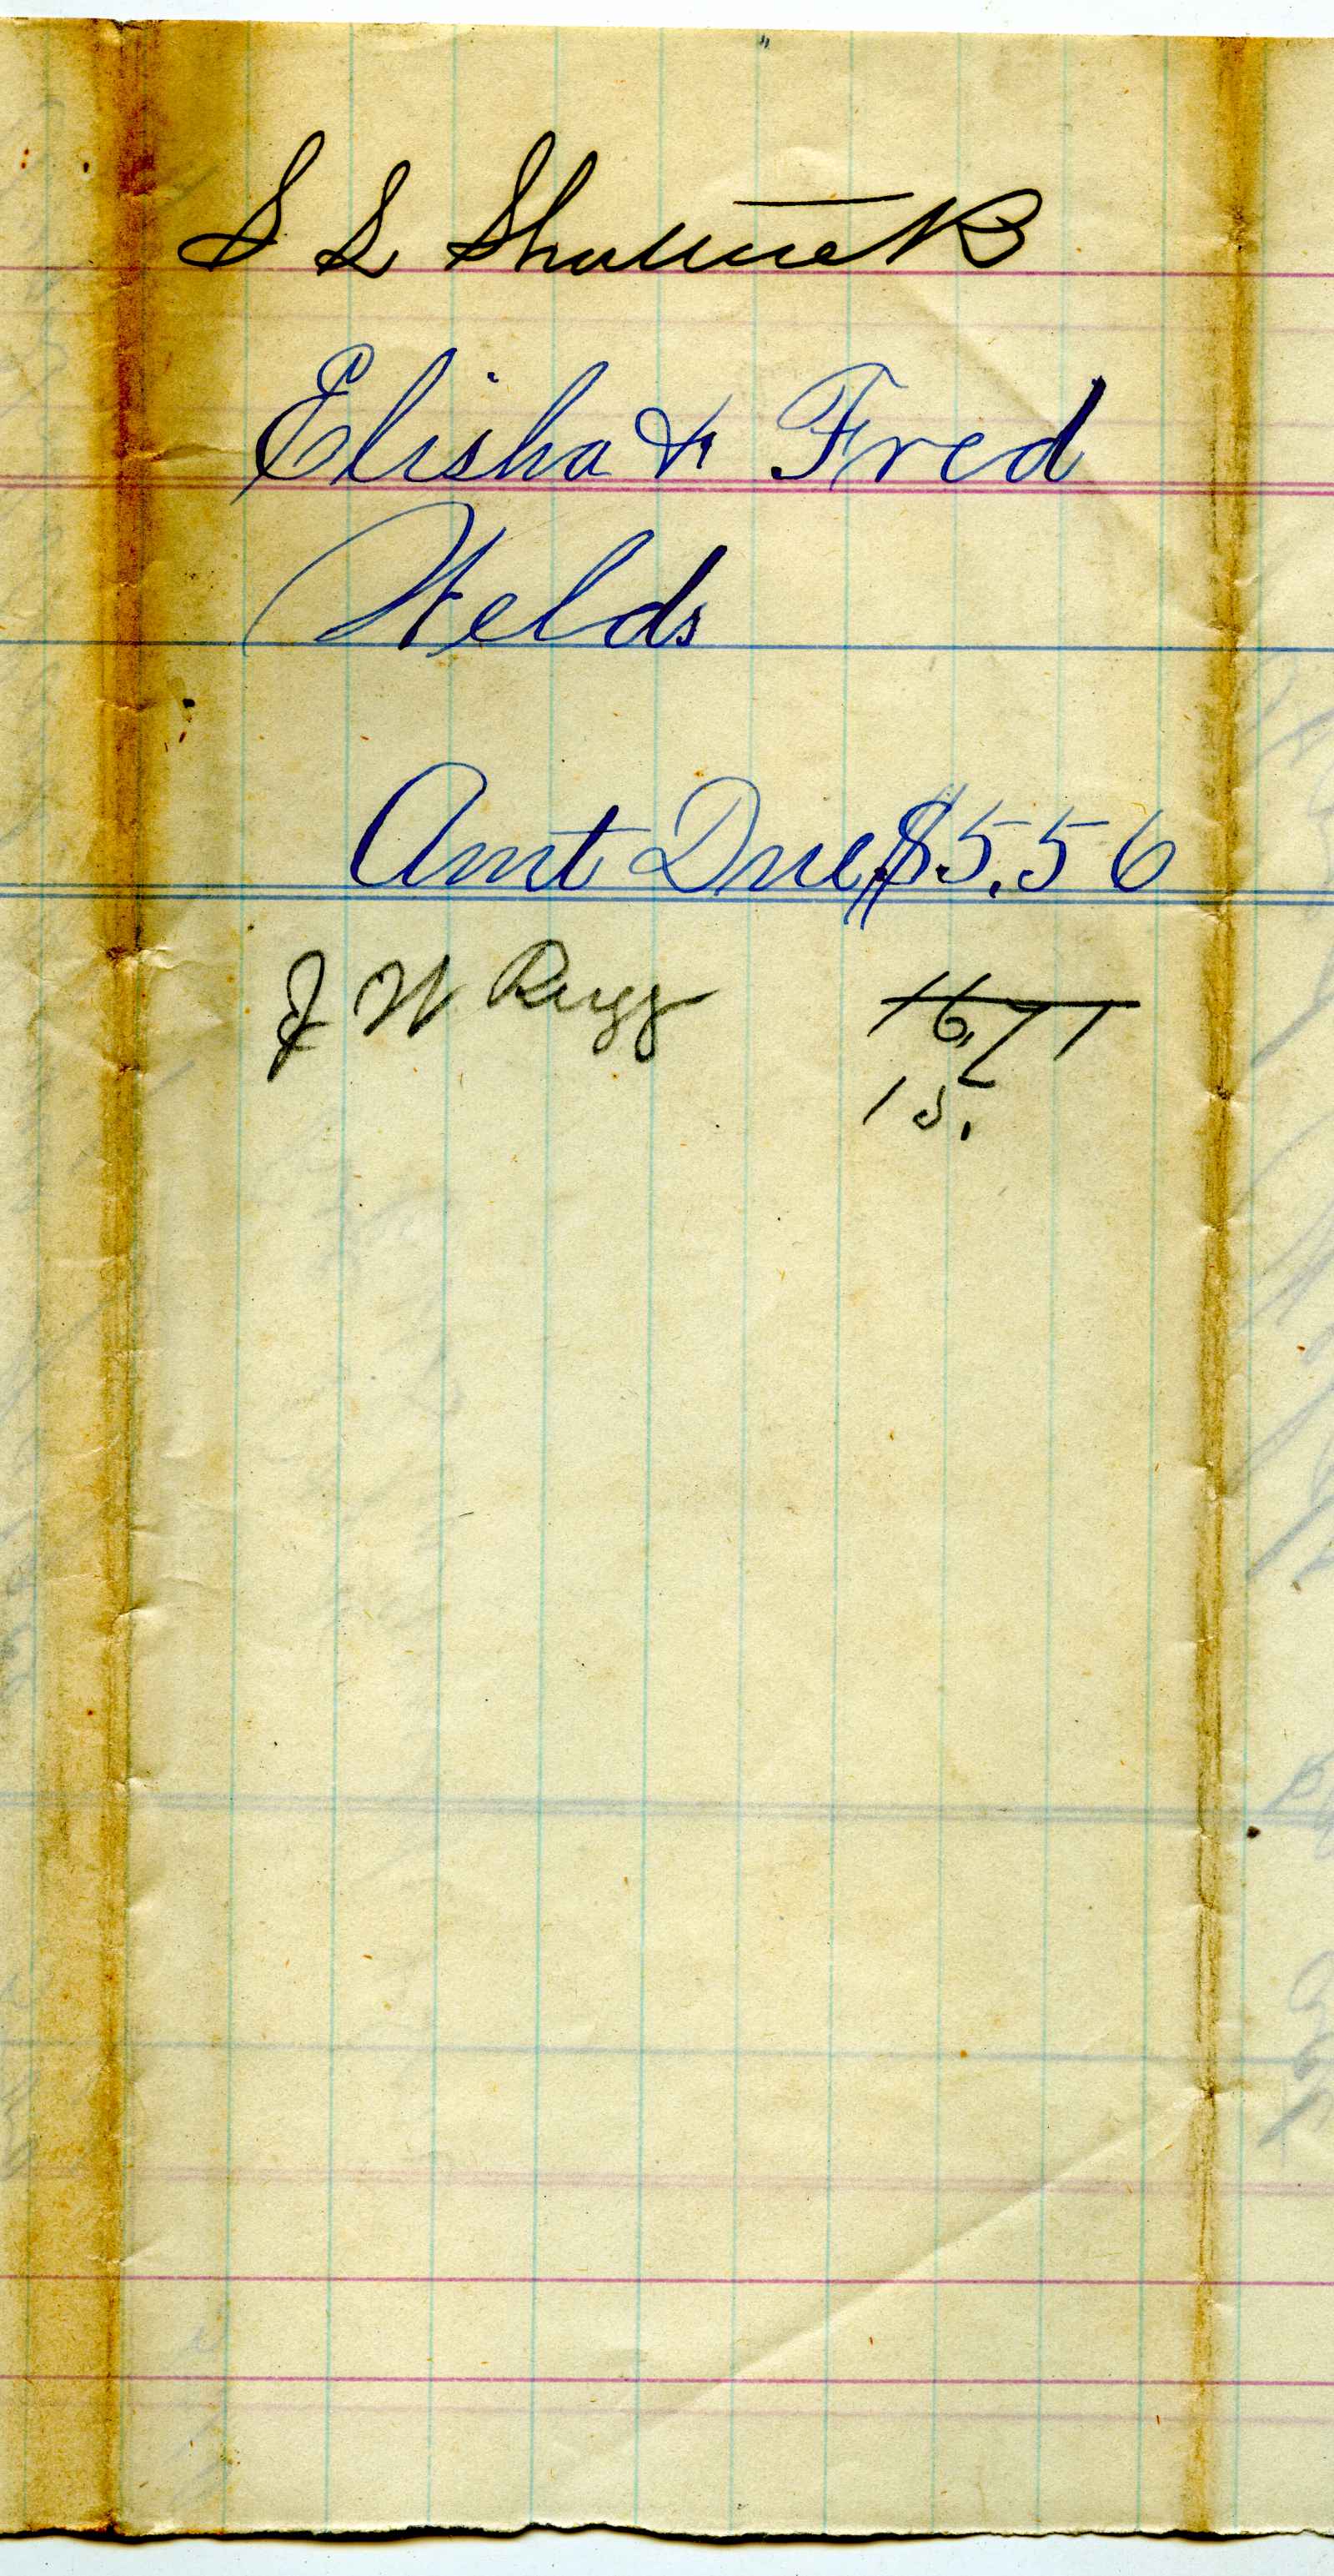 S L Shattuck
Elisha & Fred
Welds
Amt Due, $5.56
J W Rugg 16.71
15.